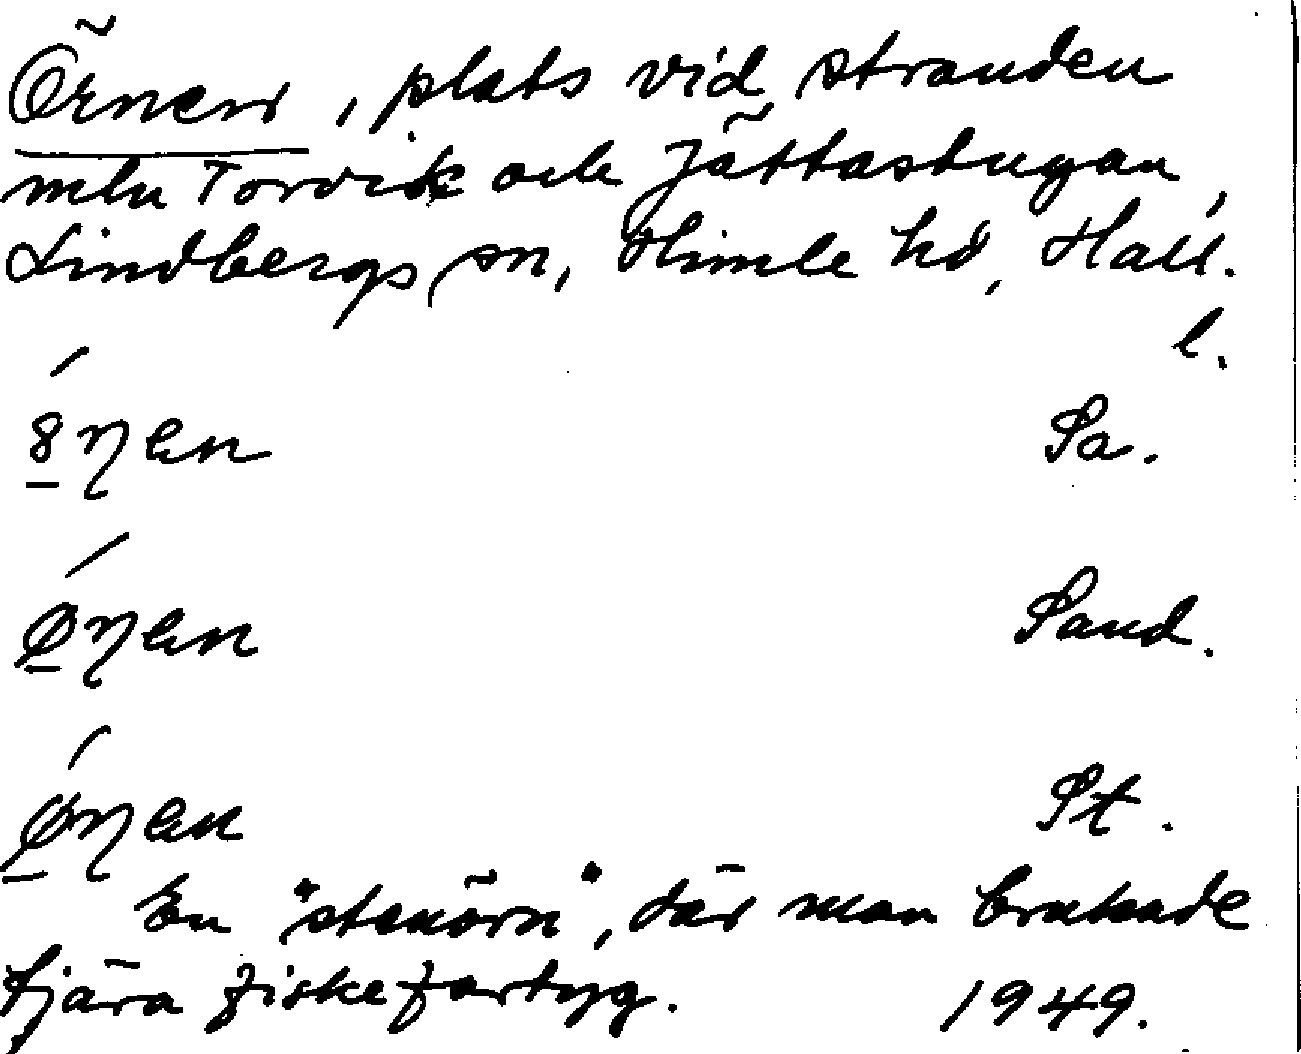 Örnen, plats vid stranden
mln Torvik och Jättastugan,
Lindbergs sn, Himle hd, Hall.
l.
8ŋen Sa.
øŋen Sand.
øŋen St.
En "stenörn", där man brukade
tjära fiskefartyg. 1949.